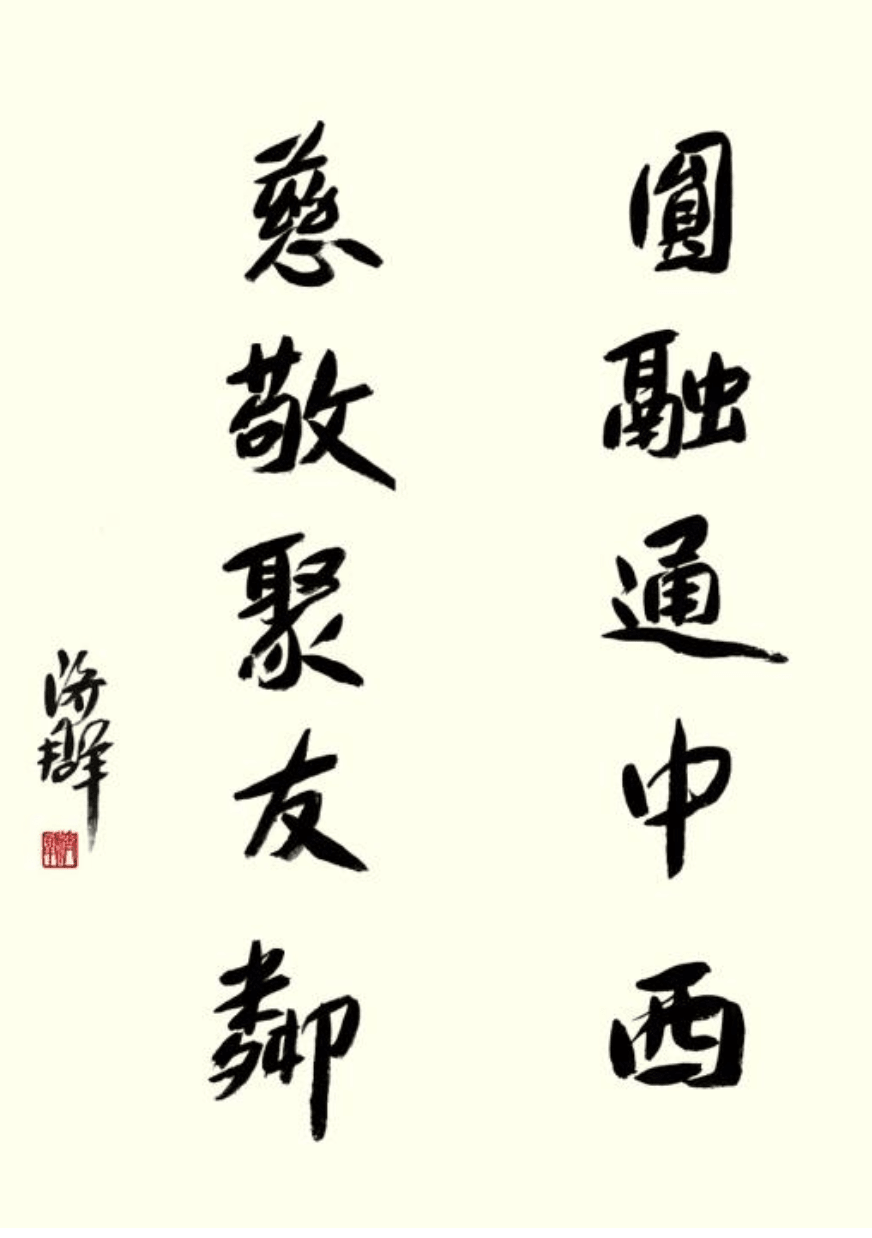 圓融通中西
慈敬聚友鄰
濟群